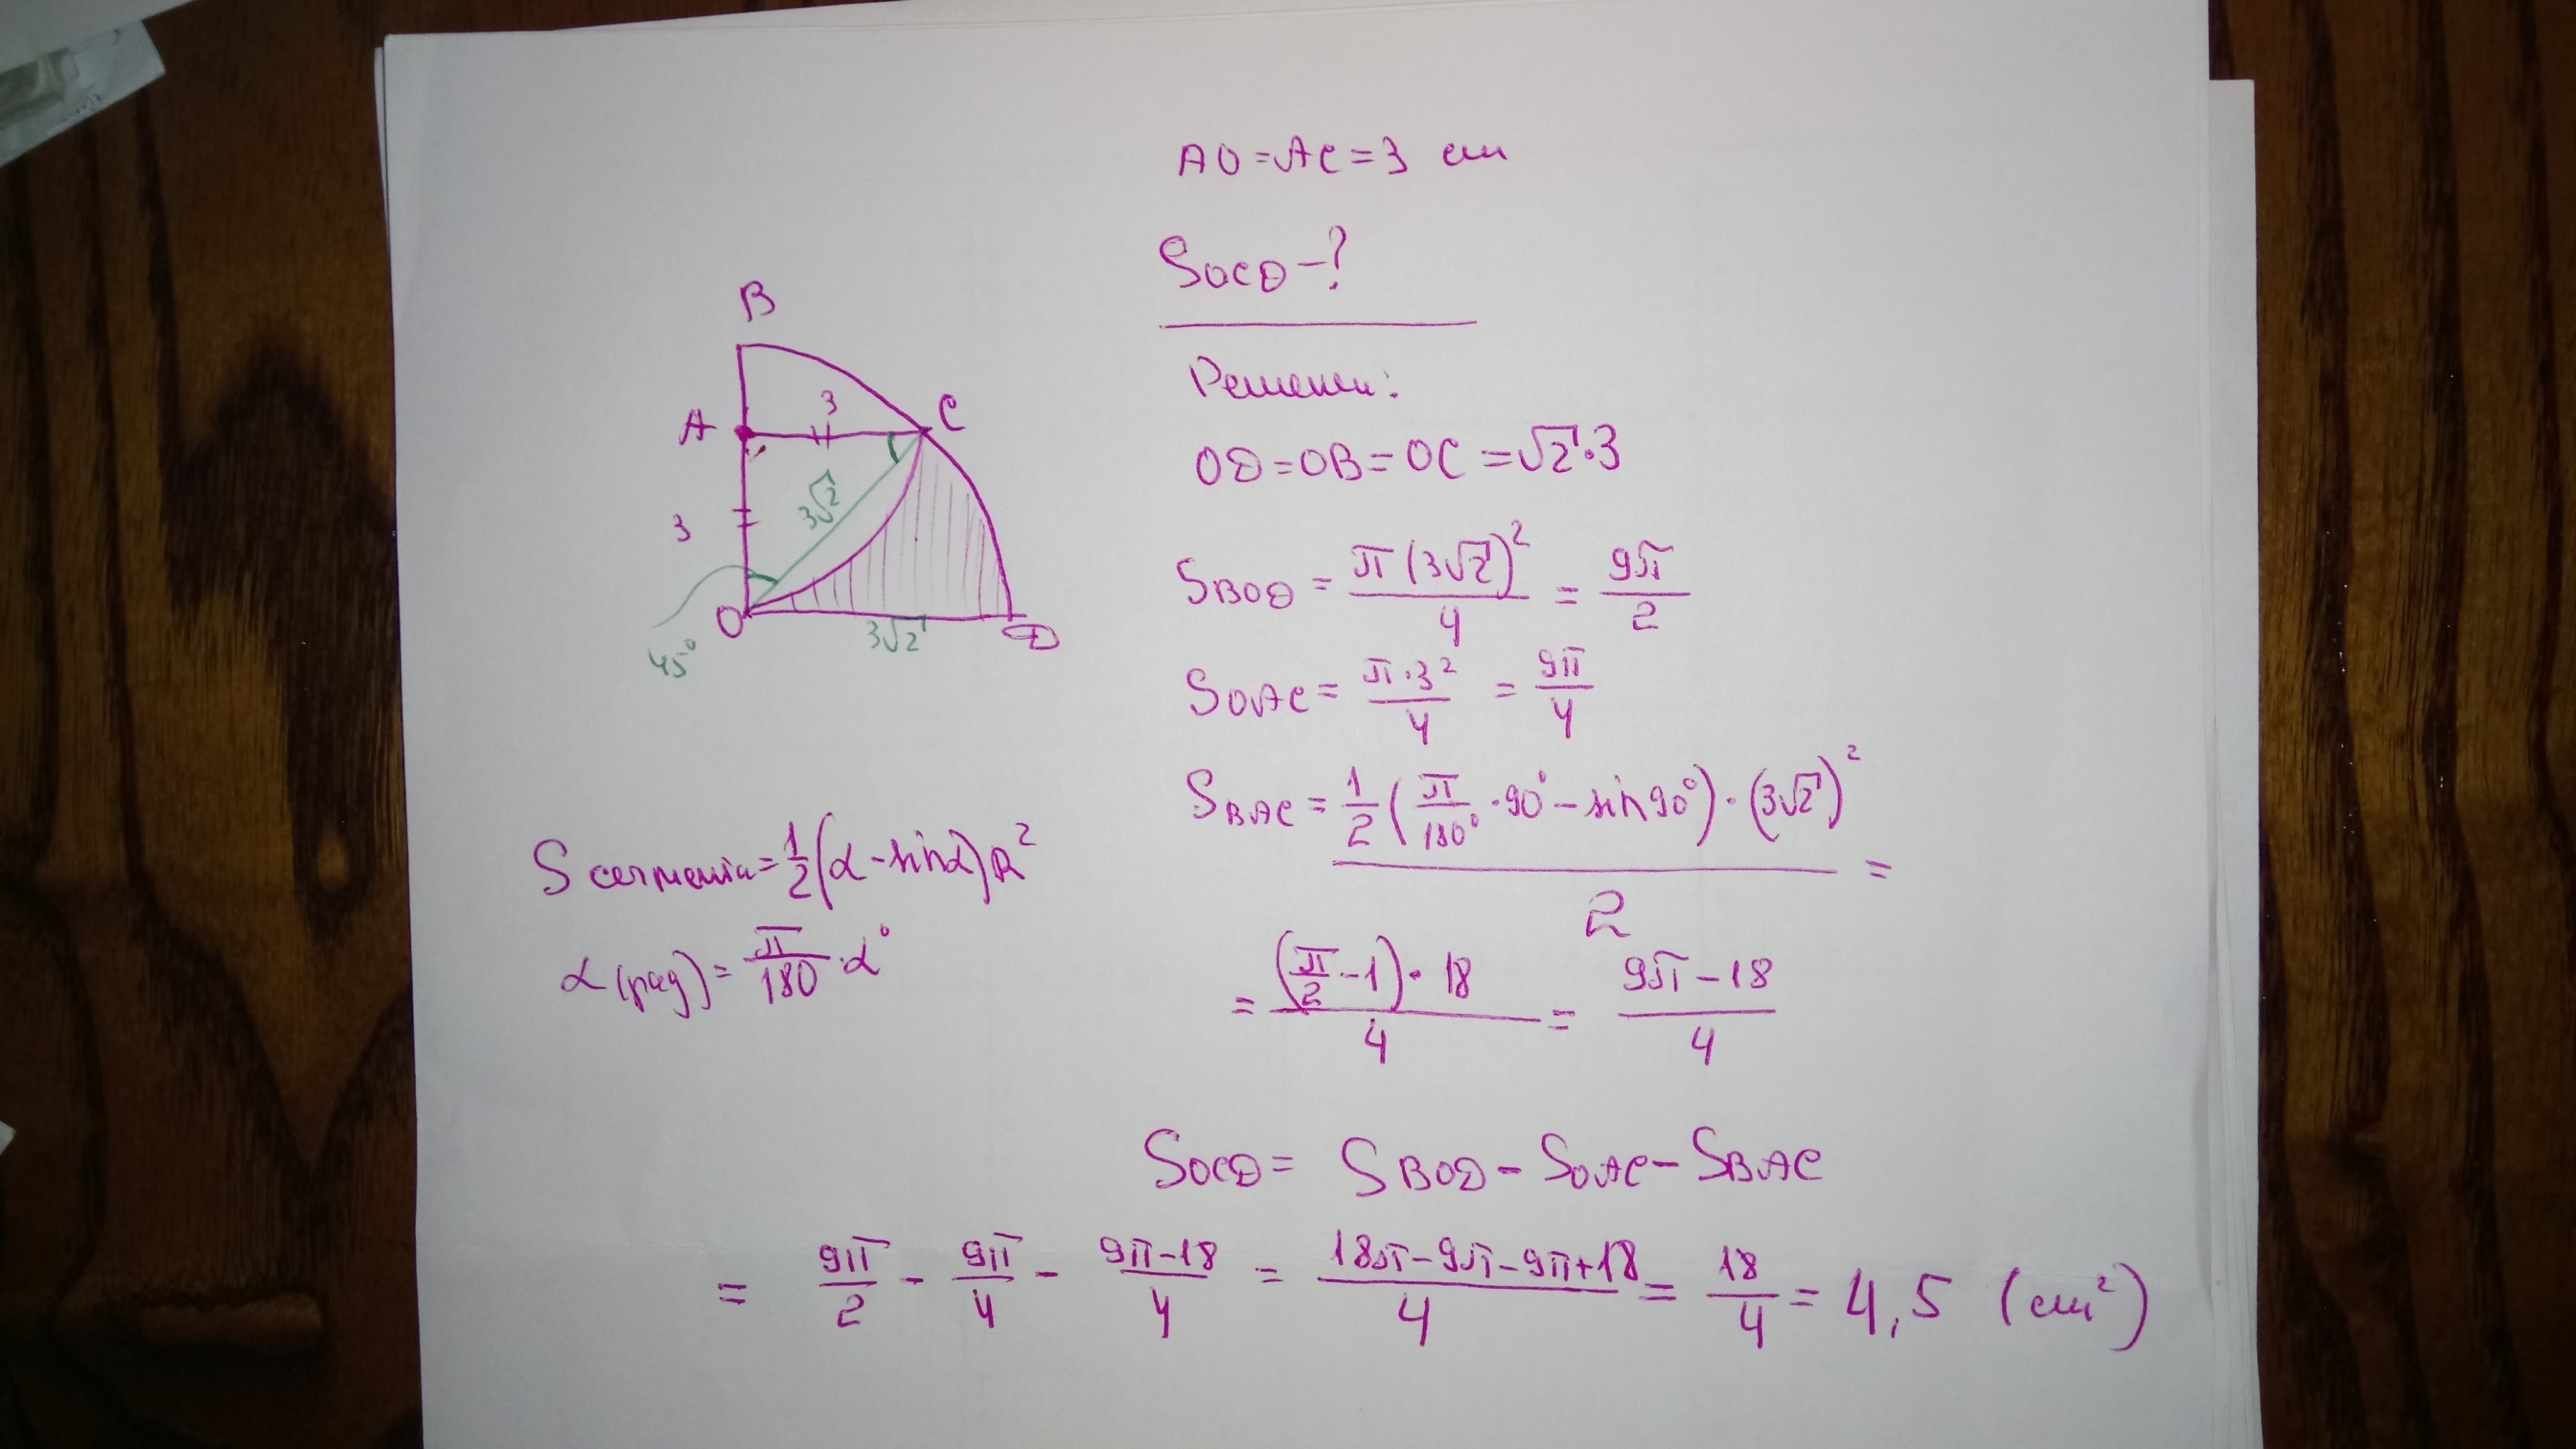 AO = AC = 3 см
SOCD - ?
Решении:
OD = OB = OC = √2 · 3
SBOD = π(3√2)² / 4 = 9π / 2
SOAC = π · 3² / 4 = 9π / 4
SBAC = 1/2 (π/180° · 90° - sin 90°) · (3√2)² / 2 =
= (π/2 - 1) · 18 / 4 = 9π - 18 / 4
B
A
3
C
3
3√2
O
3√2
D
45°
S сегмента = 1/2 (α - sin α) R²
α (рад) = π/180 · α°
SOCD = SBOD - SOAC - SBAC
= 9π/2 - 9π/4 - 9π - 18 / 4 = 18π - 9π - 9π + 18 / 4 = 18/4 = 4,5 (см²)